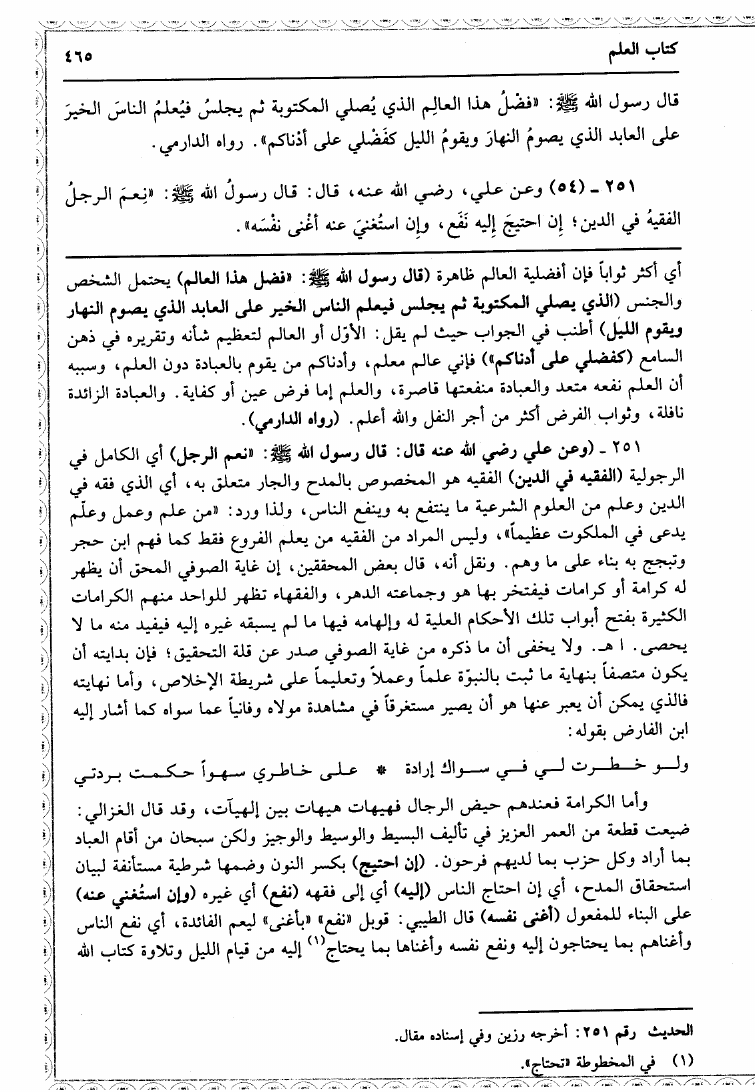 كتاب العلم ٤٦٥
قال رسول الله ﷺ: «فضْلُ هذا العالِم الذي يُصلي المكتوبة ثم يجلسُ فيُعلمُ الناسَ الخيرَ
على العابد الذي يصومُ النهارَ ويقومُ الليل كفَضْلي على أدْناكم». رواه الدارمي.
٢٥١ ـ (٥٤) وعن علي، رضي الله عنه، قال: قال رسولُ الله ﷺ: «نِعمَ الرجلُ
الفقيهُ في الدين؛ إن احتيجَ إليه نَفَع، وإن استُغنيَ عنه أغْنى نفْسَه».
أي أكثر ثواباً فإن أفضلية العالم ظاهرة (قال رسول الله ﷺ: «فضل هذا العالم) يحتمل الشخص
والجنس (الذي يصلي المكتوبة ثم يجلس فيعلم الناس الخير على العابد الذي يصوم النهار
ويقوم الليل) أطنب في الجواب حيث لم يقل: الأوّل أو العالم لتعظيم شأنه وتقريره في ذهن
السامع (كفضلي على أدناكم») فإني عالم معلم، وأدناكم من يقوم بالعبادة دون العلم، وسببه
أن العلم نفعه متعد والعبادة منفعتها قاصرة، والعلم إما فرض عين أو كفاية. والعبادة الزائدة
نافلة، وثواب الفرض أكثر من أجر النفل والله أعلم. (رواه الدارمي).
٢٥١ ـ (وعن علي رضي الله عنه قال: قال رسول الله ﷺ: «نعم الرجل) أي الكامل في
الرجولية (الفقيه في الدين) الفقيه هو المخصوص بالمدح والجار متعلق به، أي الذي فقه في
الدين وعلم من العلوم الشرعية ما ينتفع به وينفع الناس، ولذا ورد: «من علم وعمل وعلّم
يدعى في الملكوت عظيماً»، وليس المراد من الفقيه من يعلم الفروع فقط كما فهم ابن حجر
وتبجح به بناء على ما وهم. ونقل أنه، قال بعض المحققين، إن غاية الصوفي المحق أن يظهر
له كرامة أو كرامات فيفتخر بها هو وجماعته الدهر، والفقهاء تظهر للواحد منهم الكرامات
الكثيرة بفتح أبواب تلك الأحكام العلية له وإلهامه فيها ما لم يسبقه غيره إليه فيفيد منه ما لا
يحصى. ا هـ. ولا يخفى أن ما ذكره من غاية الصوفي صدر عن قلة التحقيق؛ فإن بدايته أن
يكون متصفاً بنهاية ما ثبت بالنبوّة علماً وعملاً وتعليماً على شريطة الإخلاص، وأما نهايته
فالذي يمكن أن يعبر عنها هو أن يصير مستغرقاً في مشاهدة مولاه وفانياً عما سواه كما أشار إليه
ابن الفارض بقوله:
ولو خطرت لي في سواك إرادة * على خاطري سهواً حكمت بردتي
وأما الكرامة فعندهم حيض الرجال فهيهات هيهات بين إلهيآت، وقد قال الغزالي:
ضيعت قطعة من العمر العزيز في تأليف البسيط والوسيط والوجيز ولكن سبحان من أقام العباد
بما أراد وكل حزب بما لديهم فرحون. (إن احتيج) بكسر النون وضمها شرطية مستأنفة لبيان
استحقاق المدح، أي إن احتاج الناس (إليه) أي إلى فقهه (نفع) أي غيره (وإن استُغني عنه)
على البناء للمفعول (أغنى نفسه) قال الطيبي: قوبل «نفع» «بأغنى» ليعم الفائدة، أي نفع الناس
وأغناهم بما يحتاجون إليه ونفع نفسه وأغناها بما يحتاج(١) إليه من قيام الليل وتلاوة كتاب الله
الحديث رقم ٢٥١: أخرجه رزين وفي إسناده مقال.
(١) في المخطوطة «تحتاج».